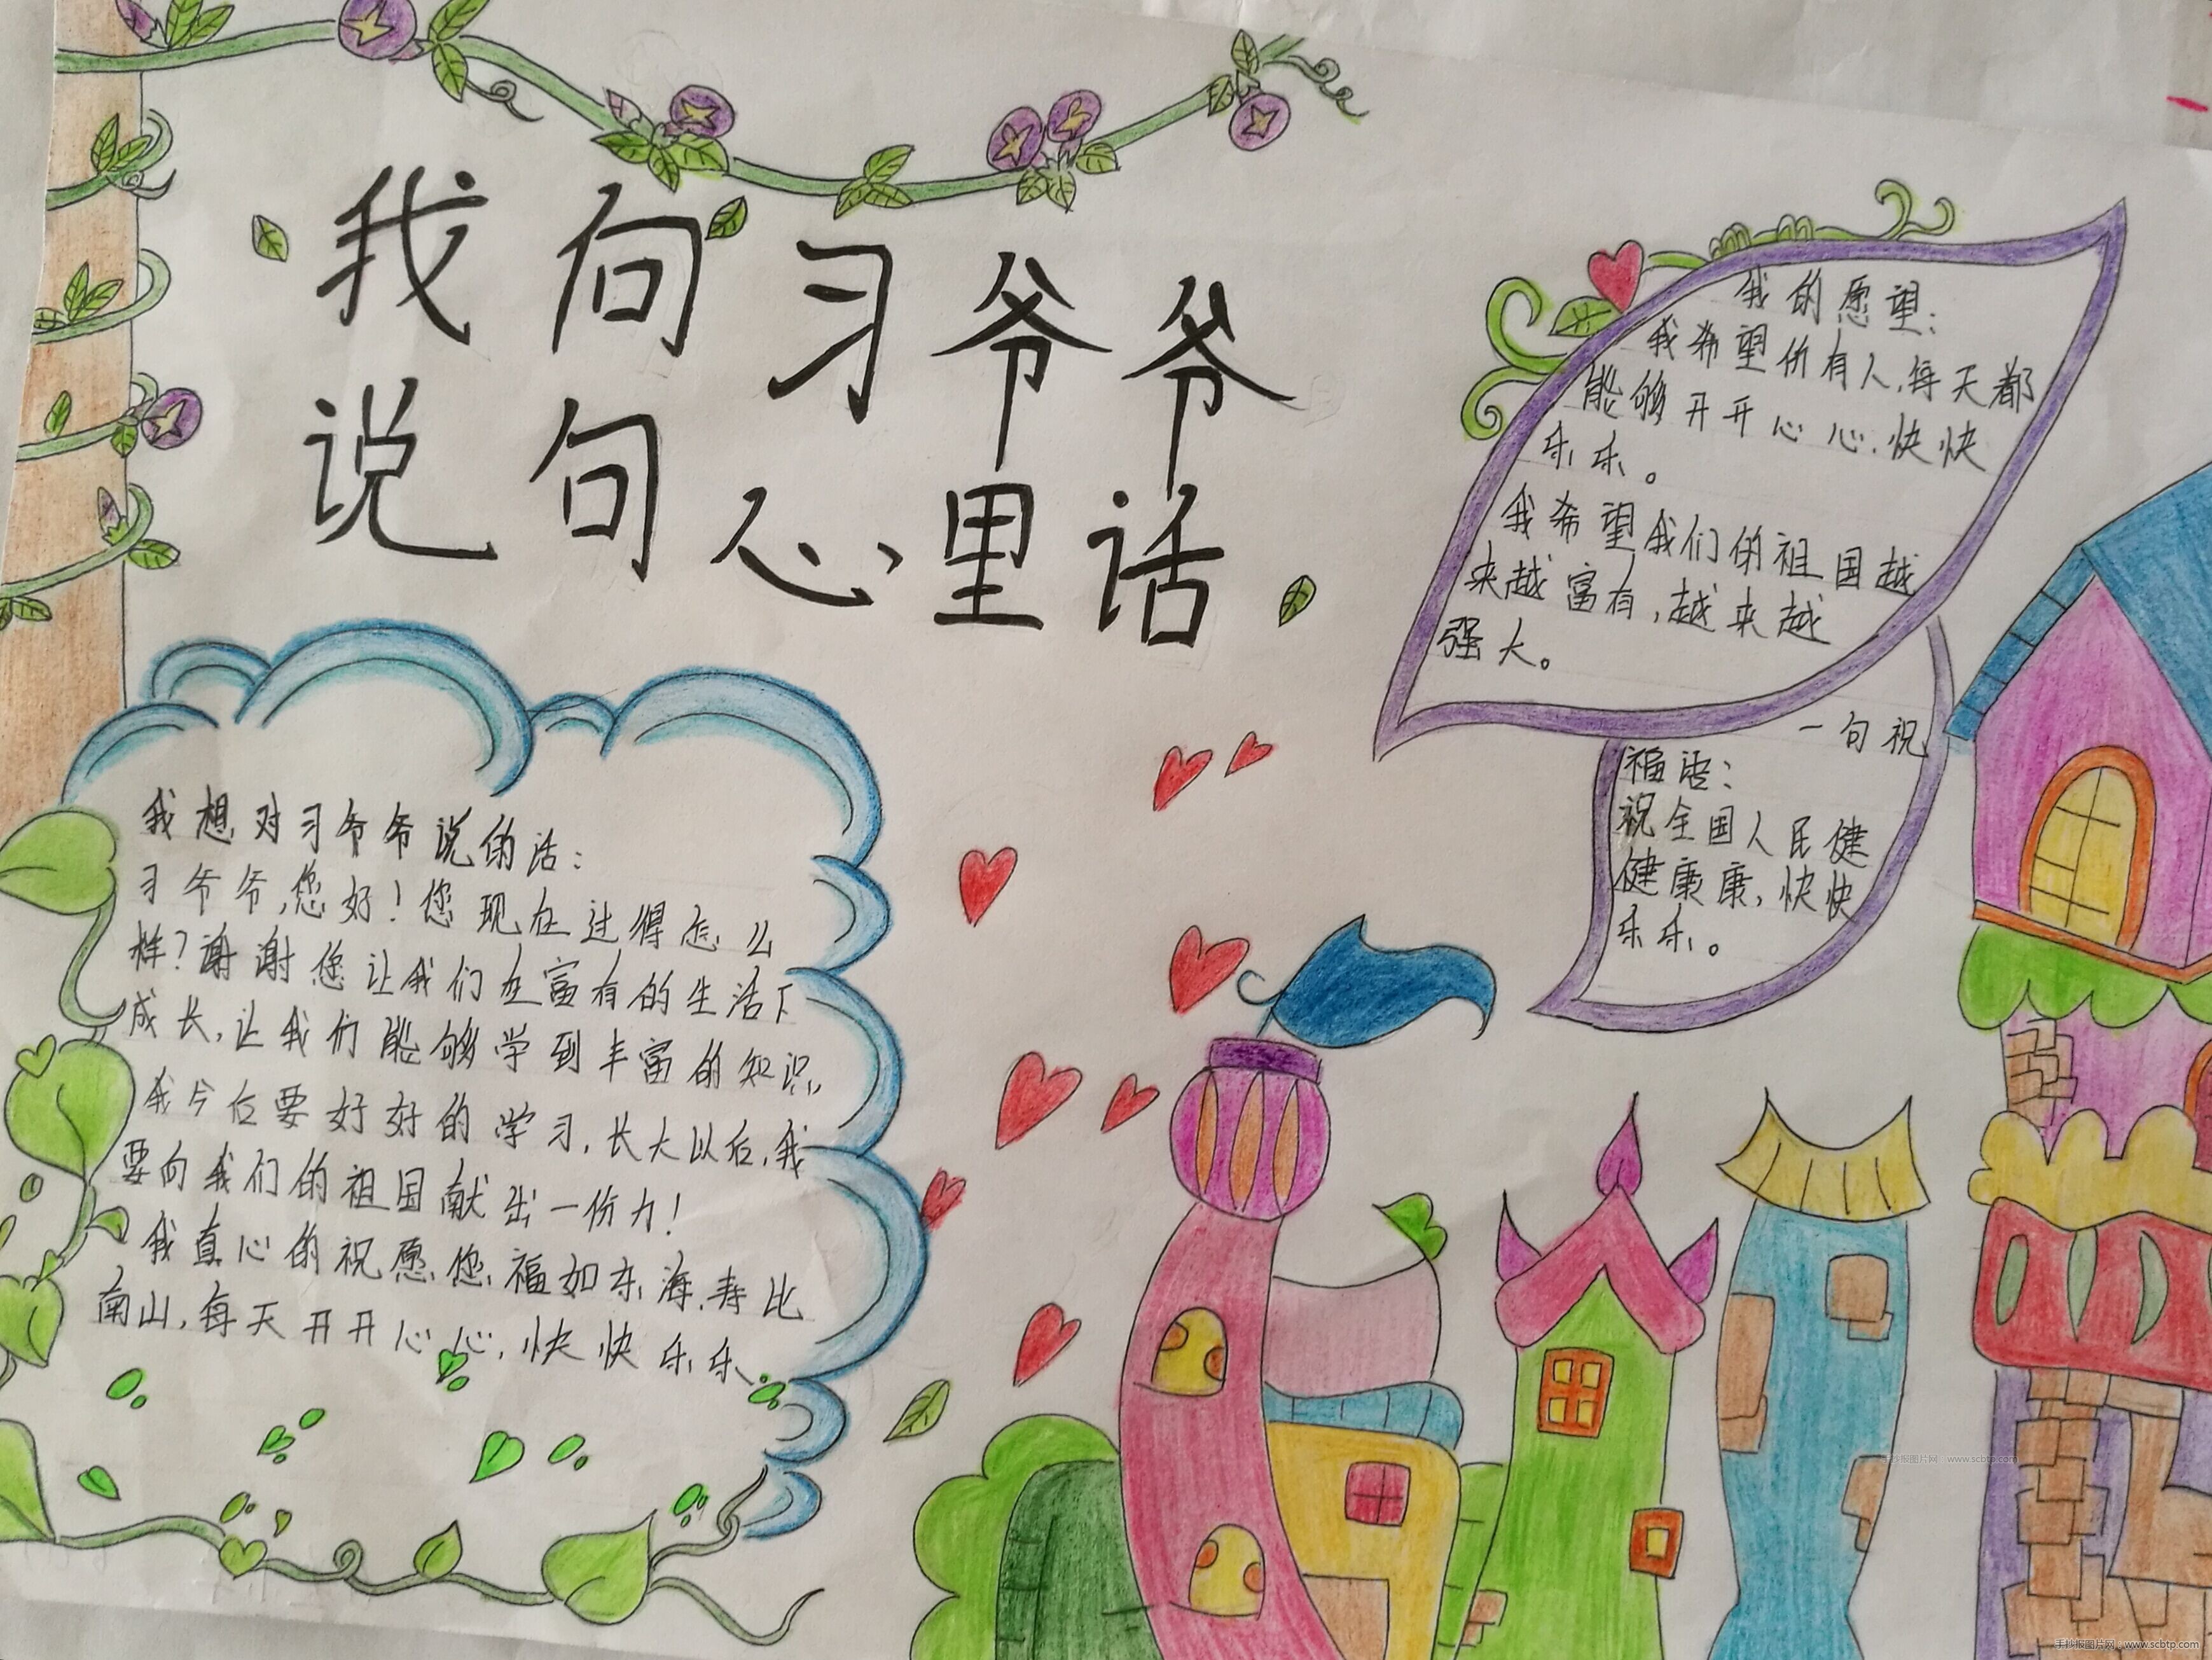 我向习爷爷
说句心里话
我的愿望：
我希望所有人，每天都
能够开开心心，快快
乐乐。
我希望我们的祖国越
来越富有，越来越
强大。
一句祝
福语：
祝全国人民健
健康康，快快
乐乐。
我想对习爷爷说的话：
习爷爷，您好！您现在过得怎么
样？谢谢您让我们在富有的生活下
成长，让我们能够学到丰富的知识，
我今后要好好的学习，长大以后，我
要向我们的祖国献出一份力！
我真心的祝愿您，福如东海，寿比
南山，每天开开心心，快快乐乐。
手抄报图片网 www.scbtp.com
手抄报图片网：www.scbtp.com